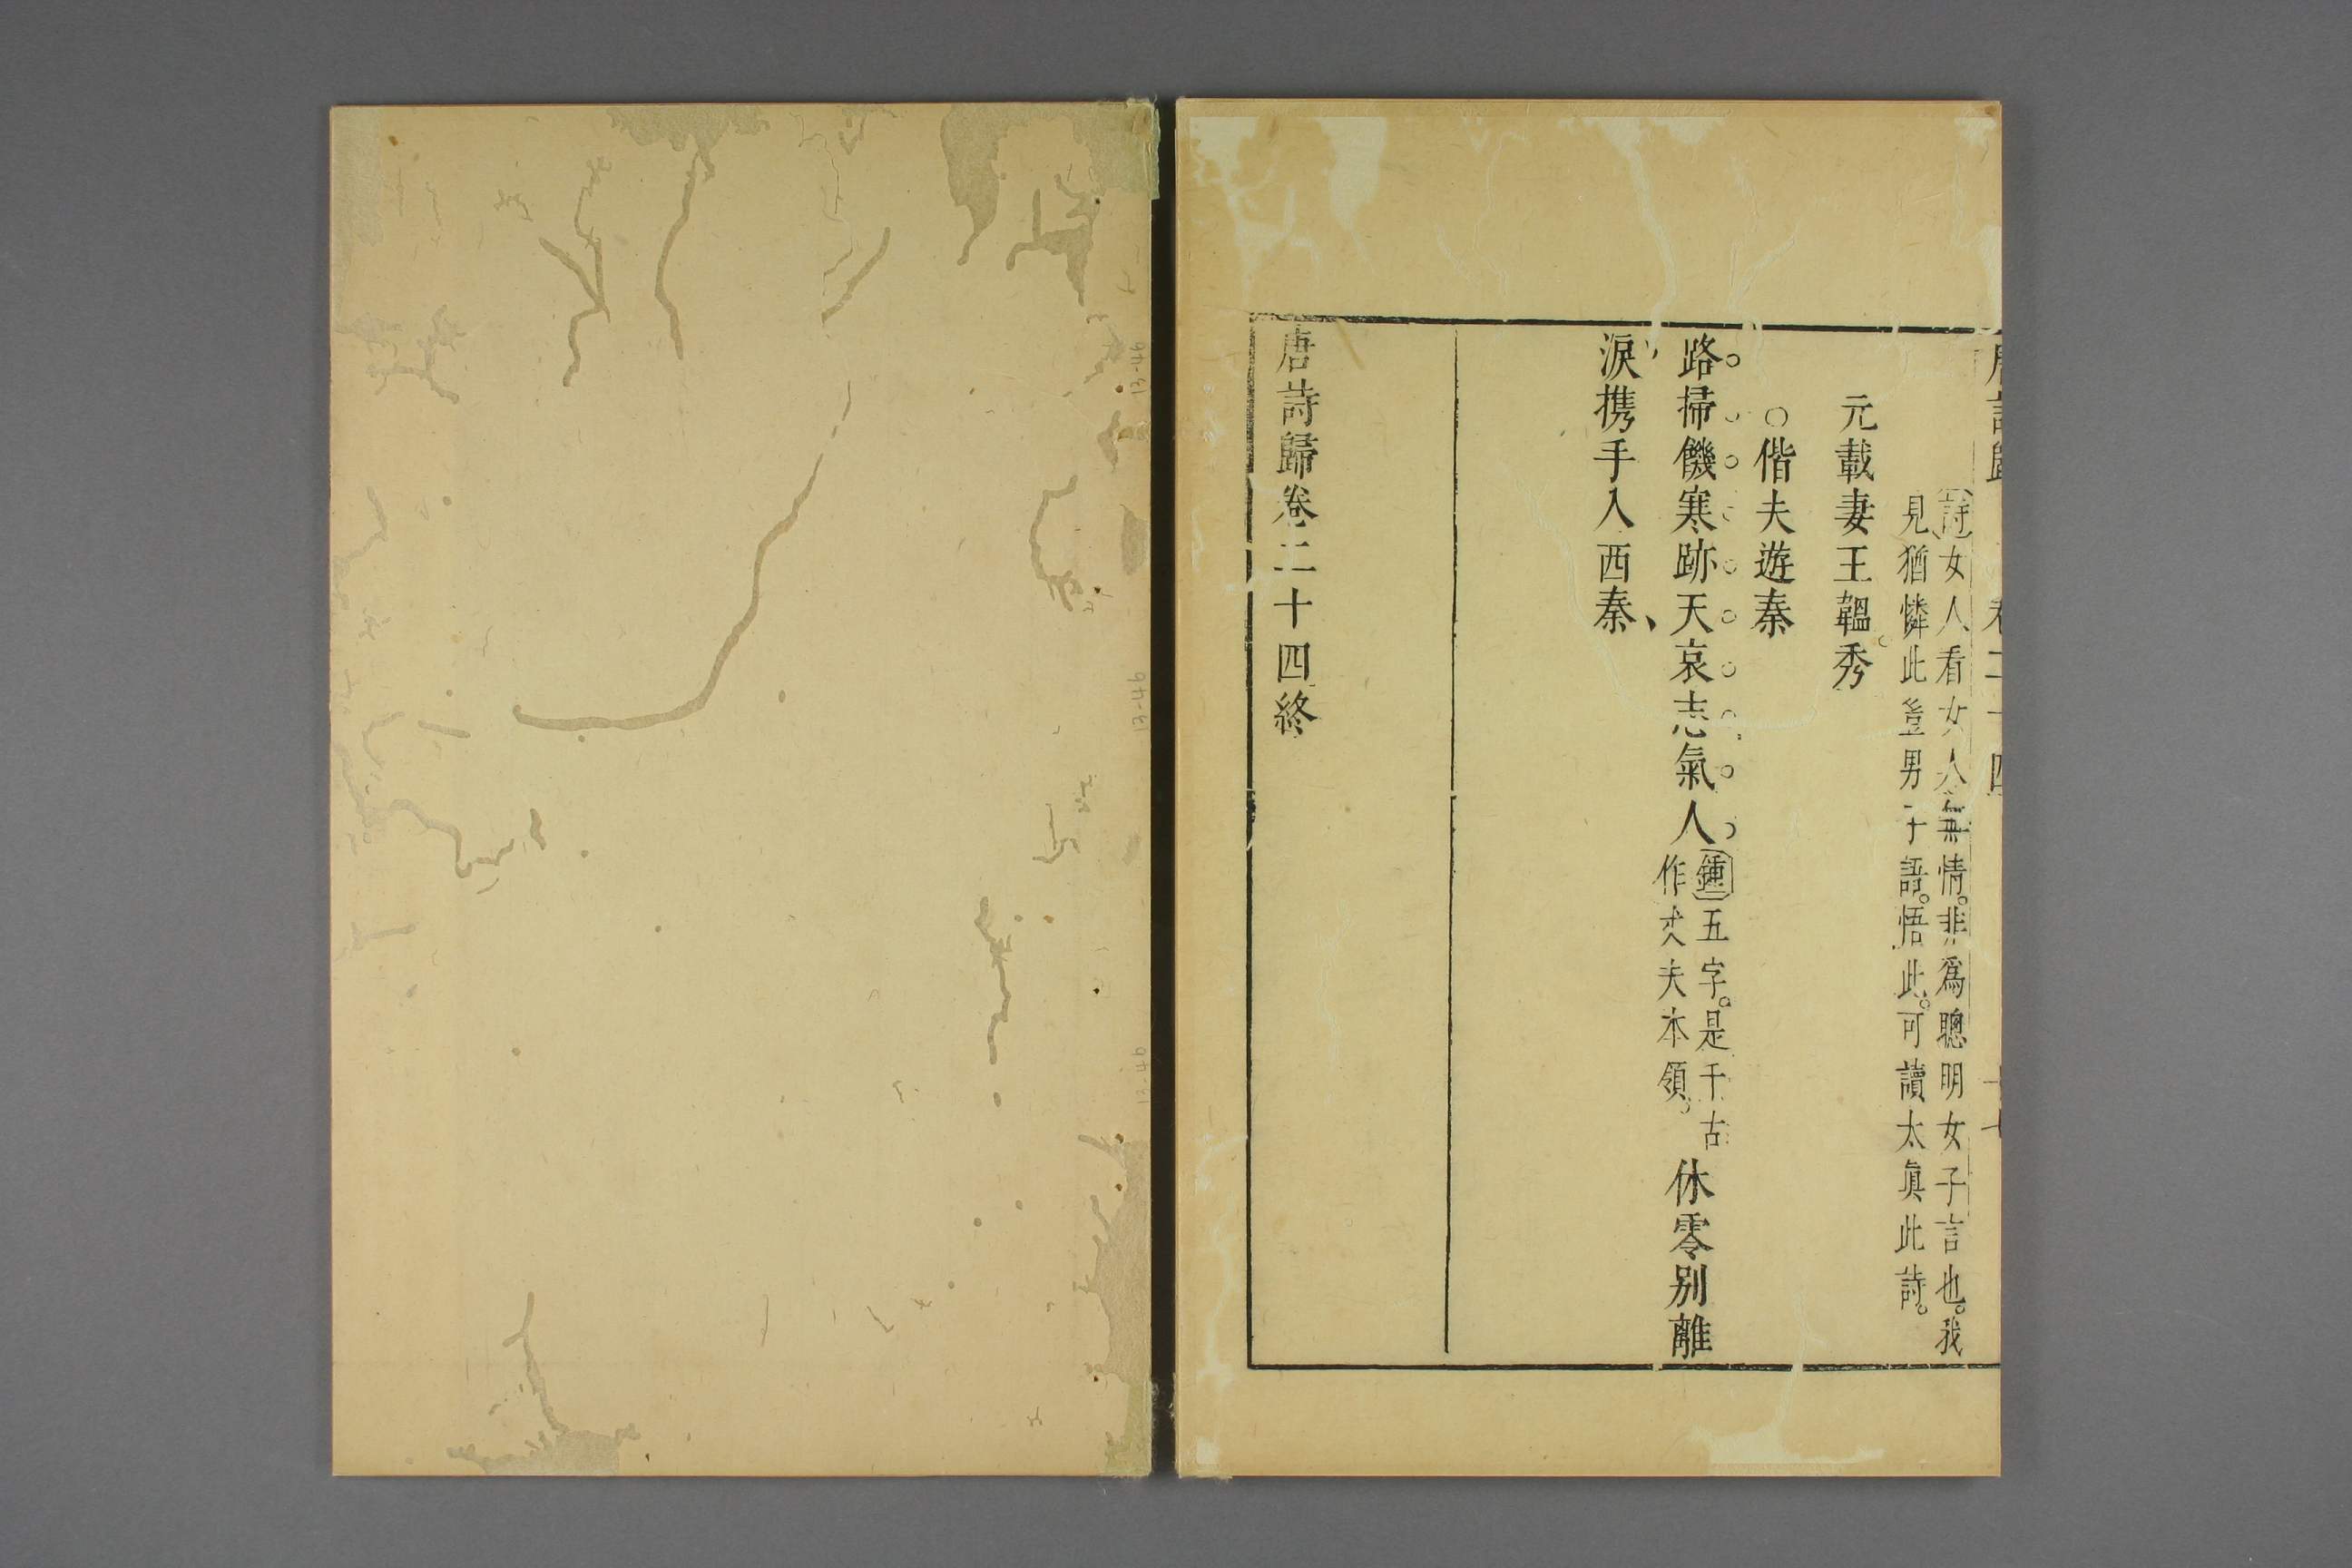 唐詩歸 卷二十四
女人看女人無情。非爲聰明女子言也。我
見猶憐此豈男子語。悟此。可讀太眞此詩。
元載妻王韞秀
○偕夫遊秦
路掃饑寒跡天哀志氣人
鍾五字。是千古
作丈夫本領。
休零别離
淚携手入西秦
唐詩歸卷二十四終